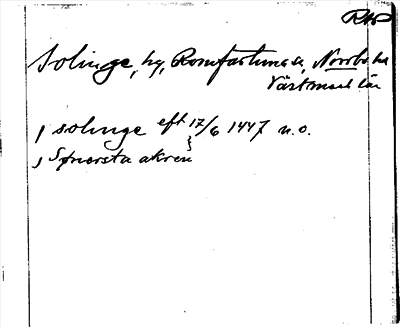 RAP
Solinge, by, Romfartuna sn, Norrbo hd
Västmanl län
j solinge eft 17/6 1447 n.o.
j Spnersta akren